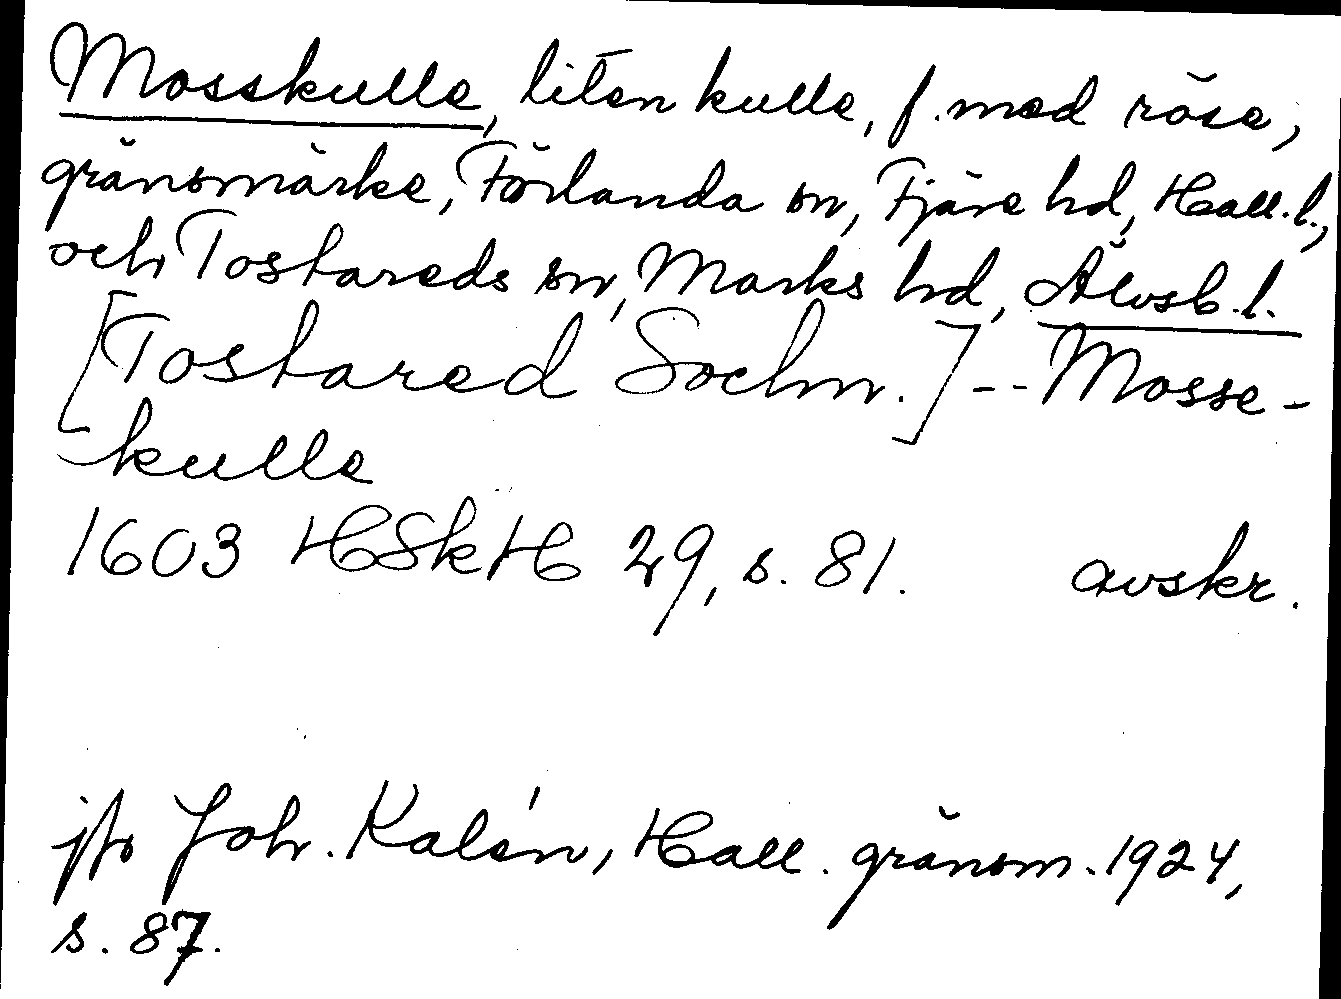 Mosskulle, liten kulle, f. med röse,
gränsmärke, Förlanda sn, Fjäre hd, Hall.l.,
och Tostareds sn, Marks hd, Älvsb.l.
[Tostared Sochn.] -- Mosse-
-kulle
1603 HSkH 29, s. 81. avskr.
jfr Joh. Kalén, Hall. gränsm. 1924,
s. 87.